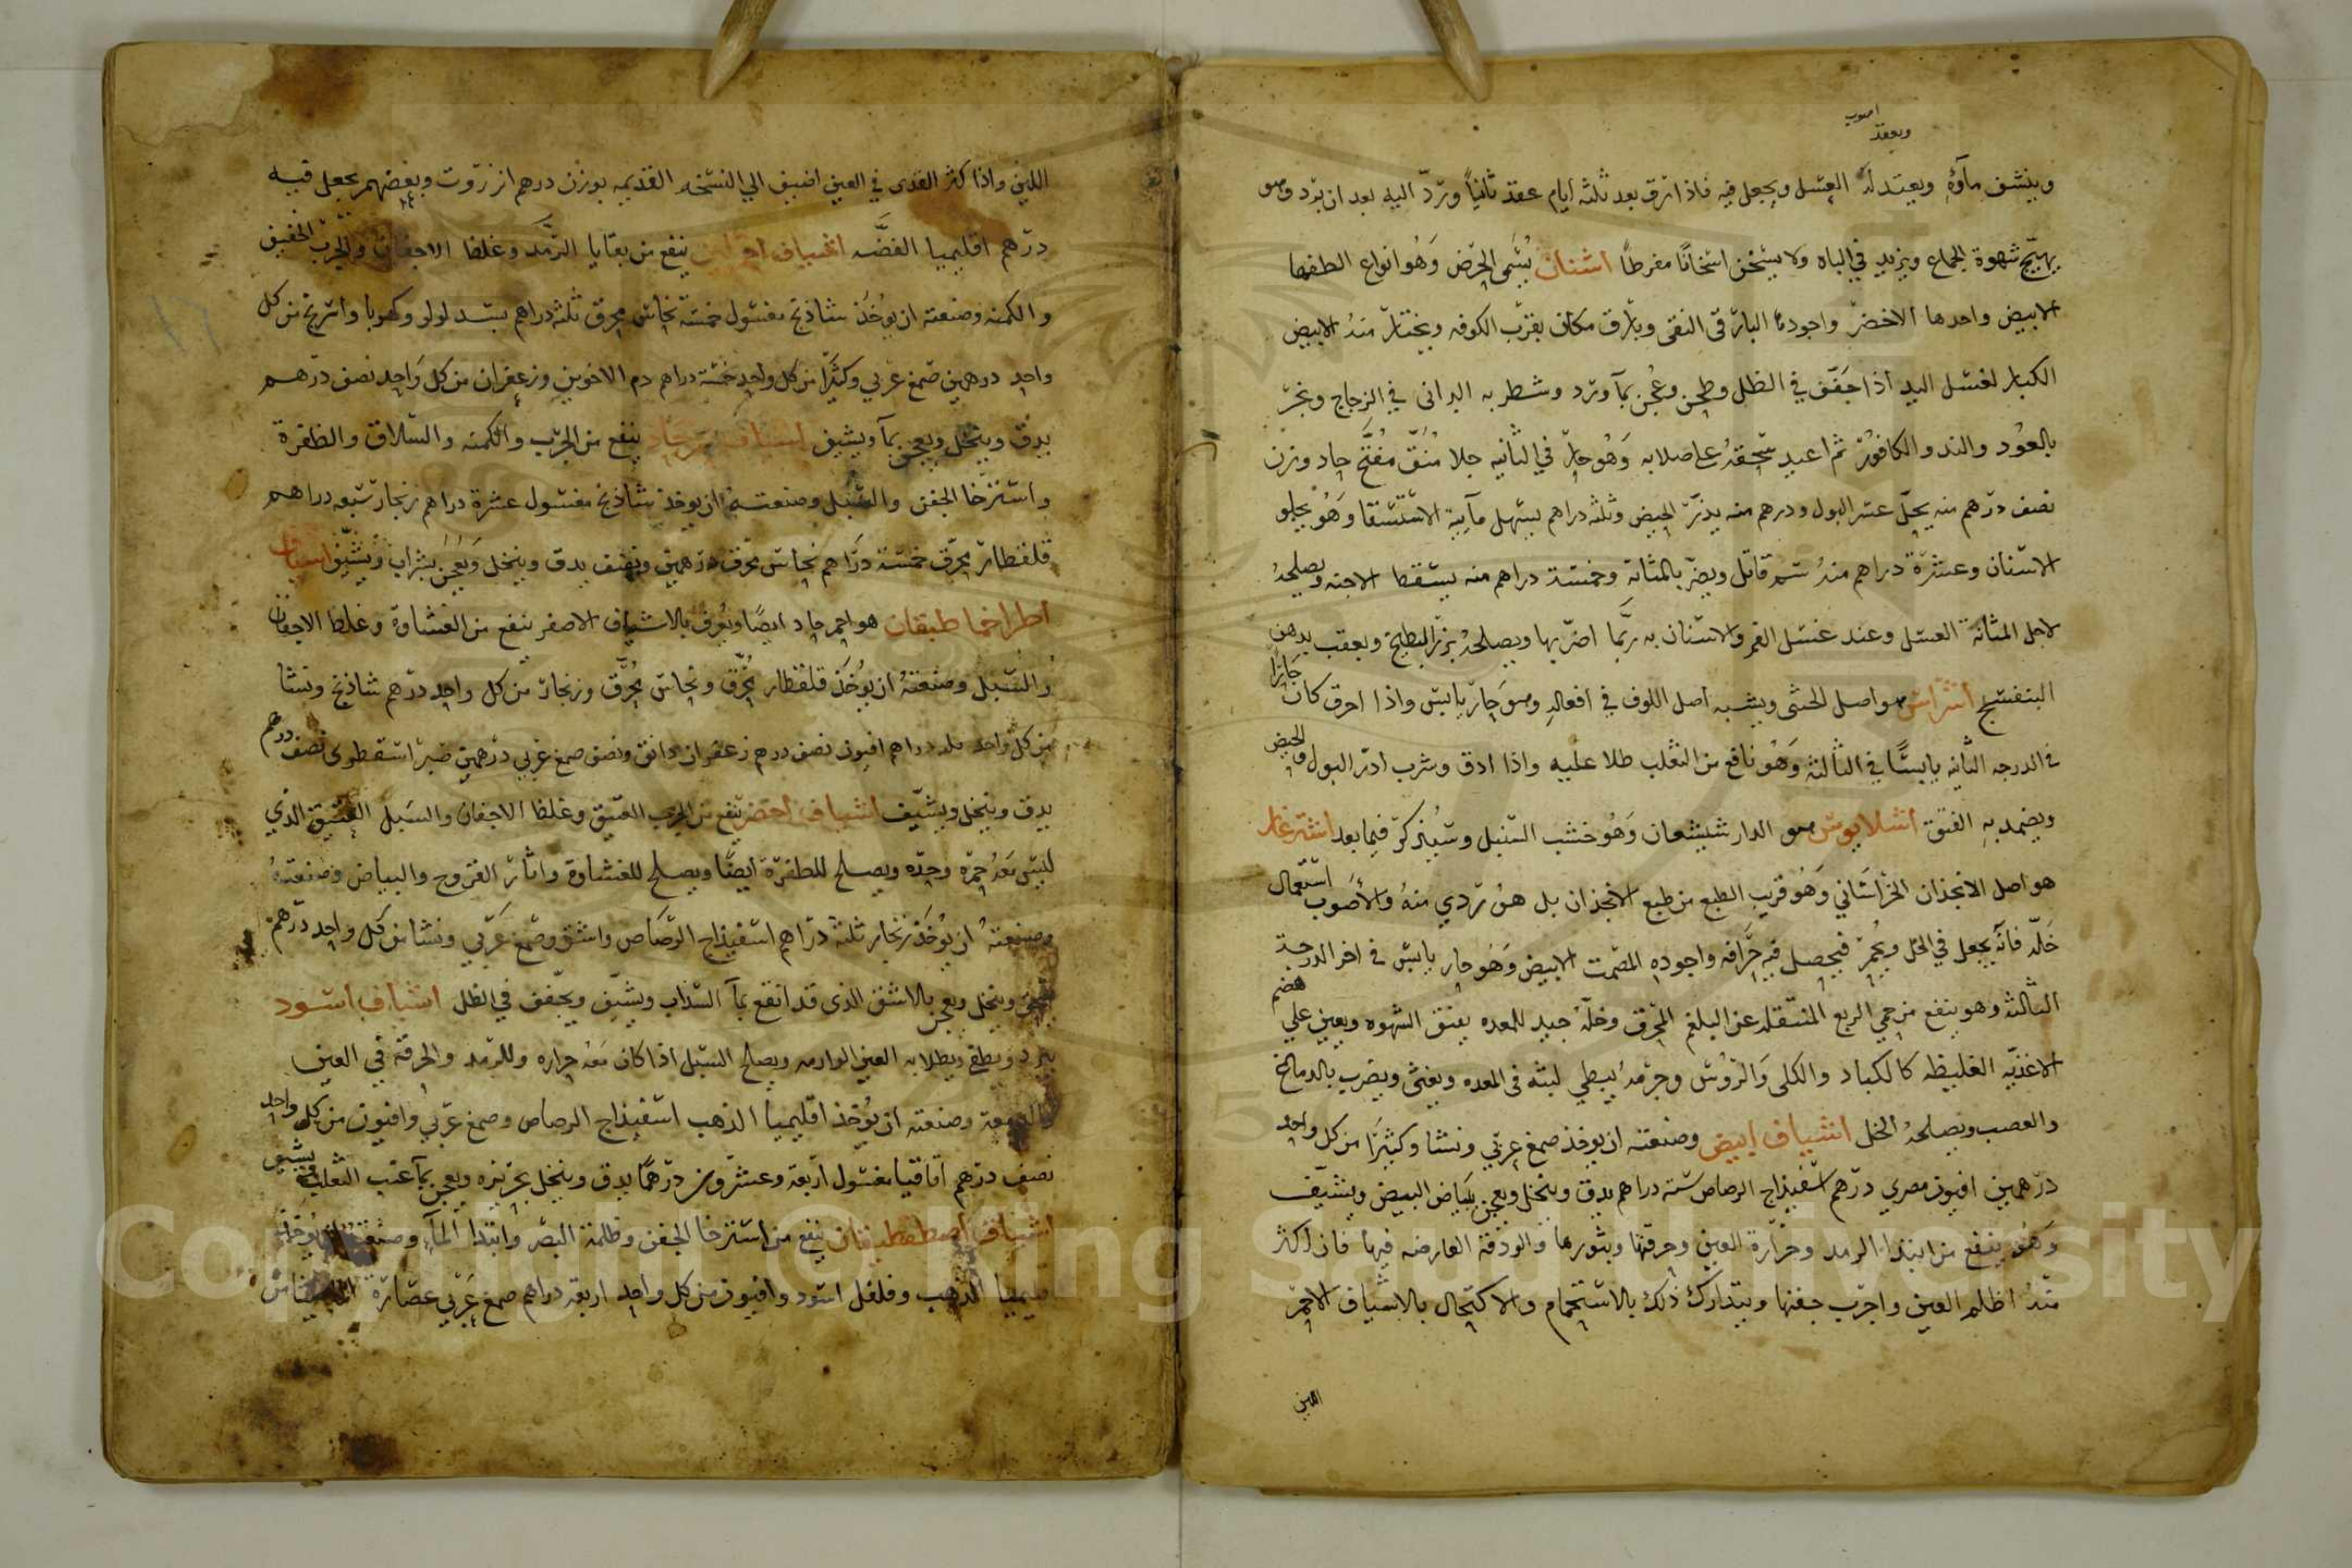 اصوب
ويعقد
وينشف مآؤه ويعتد له العسل ويجعل فيه فاذا رق بعد ثلثة ايام عقد ثانياً وردّ اليه بعد ان برد وهو
يهيّج شهوة الجماع ويزيد في الباه ولا يسخن اسخانًا مفرطاً اشنان يُسَمى الحرض وَهُو انواع الطفها
الابيض واحدها الاخضر واجوده البارقى النقى وبارق مكان بقرب الكوفه ويختار منهُ الابيض
الكبار لغسل اليد اذا جفف في الظل وطحن وعُجن بمآ ورد وشطر به البرانى في الزجاج وبخر
بالعُود والند والكافور ثم اعيد سحقهُ على صلابه وَهُو حارّ في الثانيه جلا مُنُقّ مُفَتّح حاد وزن
نصف درهم منه يحلّ عسر البول ودرهم منه يدرّ الحيض وثلثه دراهم يسهل مآيية الاستسقا وَهُو يجلو
الاسنان وعشرة دراهم منهُ سم قاتل ويضرّ بالمثانة وخمسة دراهم منه يسقط الاجنه ويصلحهُ
لاجل المثانة العسل وعند غسل الفم والاسنان به ربَّما اضرّ بها ويصلحهُ بزر البطيخ ويعقب بدهن
البنفسج اشراس هو اصل الخنثى ويشبه اصل اللوف في افعاله وهو حارّ يابس واذا احرق كان حَارًا
في الدرجه الثانيه يابسًا في الثالثه وَهُو نافع من الثعلب طلا عليه واذا ادق وشرب ادرّ البول والحيض
ويضمد به الفتق اشلابوس هو الدارشيشعان وَهُو خشب السنبل وسيُذكر فيما بعد اشترغار
هو اصل الانجذان الخراساني وَهُو قريب الطبع من طبع الانجذان بل هُو ردي منهُ والاصُوب استعمال
خَلّه فانّه يجعل في الخل ويُجمر فيحصل فيه حَرافه واجوده المصمت الابيض وَهُو حار يابس في اخر الدرجة
الثالثه وهو ينفع من حمى الربع المنتقله عن البلغم المحرق وخلّهُ جيد للمعده يفتق الشهوه ويعين على هضم
الاغذيّه الغليظه كالكباد والكلى وَالروُس وجرمهُ يبطي لبثه في المعده ويغثى ويضرب بالدماغ
والعصب ويصلحهُ الخل اشياف ابيض وصنعته ان يوخذ صمغ عربّي ونشا وكثيرَا من كل واحد
درهمين افيون مصري درهم اسفيذاج الرصاص ستة دراهم يدق وينخل ويعجن ببَياض البيض ويشيّف
وَهُو ينفع من ابتدا الرمد وحرَّارة العين وحرقتها وبثورها والودقة العارضه فيها فان اكثر
منهُ اظلم العين واجرب جفنها ويتدارك ذلك بالاستحمام والاكتحال بالاشياف الاحمر
اللين
اللين واذا كثر القذى في العين اضيف الي النسخه القديمه بوزن درهم انزروت وبعضهم يجعل فيه
درهم اقليميا الفضَّه اشياف احمر لين ينفع من بقايا الرَّمد وغلظ الاجفان والجرب الخفيف
والكمنه وصنعته ان يوُخذ شاذنج مغسول خمسة نحاس محرق ثلثه دراهم بسد لولو وكهربا وسرنج من كل
واحد درهمين صمغ عربي وكثيرَّا من كل واحد خمسة دراهم دم الاخوين وزعفران من كل وَاحد نصف درهم
يدق وينخل ويعجن بمآ ويشيف اشياف احمر حاد ينفع من الجرب والكمنه والسّلاق والظفرة
واسترخا الجفن والسَّبل وصنعتهُ ان يوخذ شاذنج مغسول عشرة دراهم زنجار سبعه دراهم
قلقطار محرق خمسة درَاهم نحاس محرق درهمين ونصف يدق وينخل وَيعجن بشراب ويُشيّف اشياف
اطراخما طيقان هو احمر حاد ايضًا ويعرف بالاشياف الاصفر ينفع من الغشاوة وغلظ الاجفان
والسبل وصنعتهُ ان يوُخَذ قلقطار مُحرّق ونحاس مُحرّق وزنجار من كل واحد درهم شاذنج ونشا
من كل واحد ثلثه دراهم افيون نصف درهم زعفران دانق ونصف صمغ عربي درهمين صبر اسقطرى نصف درهم
يدق وينخل ويشيّف اشياف اخضر ينفع من الجرب العتيق وغلظ الاجفان والسبل العتيق الذي
ليس مَعهُ حمره وحده ويصلح للظفرَة ايضًا ويصلح للغشاوة واثار القروح والبياض وصنعتهُ
وصنعتهُ ان يُوخَذ زنجار ثلثه درَاهم اسفيذاج الرّصَاص واشق وصَمغ عَربّي ونشا من كل واحد درهم
وينخل ويعجن بالاشق الذى قد انقع بمآ السّذاب ويشيّف ويجفّف في الظل اشياف اسود
يبرد ويطفي ويطلا به العين الوارمه ويصلح السبل اذا كان مَعهُ حراره وللرّمد والحرقة في العين
والدمعة وصنعته ان يُوخذ اقليميا الذهب اسفيذاج الرصاص وصمغ عربّي وافيون من كل واحد
نصف درهم اقاقيا مغسول اربعة وعشرُون درهمًا يدق وينخل بحريره ويعجن بمآ عنب الثعلب ويشيف
اشياف اصطفطيقان ينفع من استرخا الجفن وظلمة البصر وابتدا المآء وصنعتهُ ان يُوخذ
اقليميا الذهب وفلفل اسود وافيون من كل واحد اربعة دراهم صمغ عَربّي عصَارة
Copyright © King Saud University